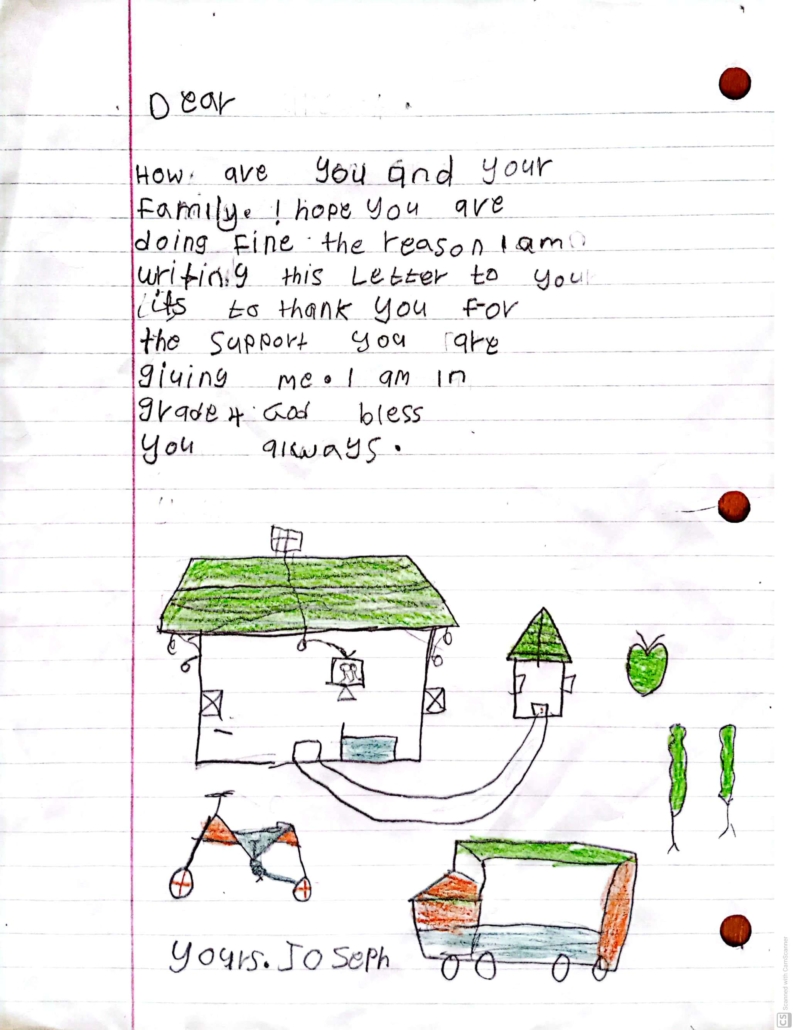 Dear
How are you and your
Family. I hope you are
doing Fine the reason I am
writing this Letter to you
its to thank you For
the Support you are
giving me. I am in
grade 4 God bless
you always.
Yours. Joseph
CS Scanned with CamScanner